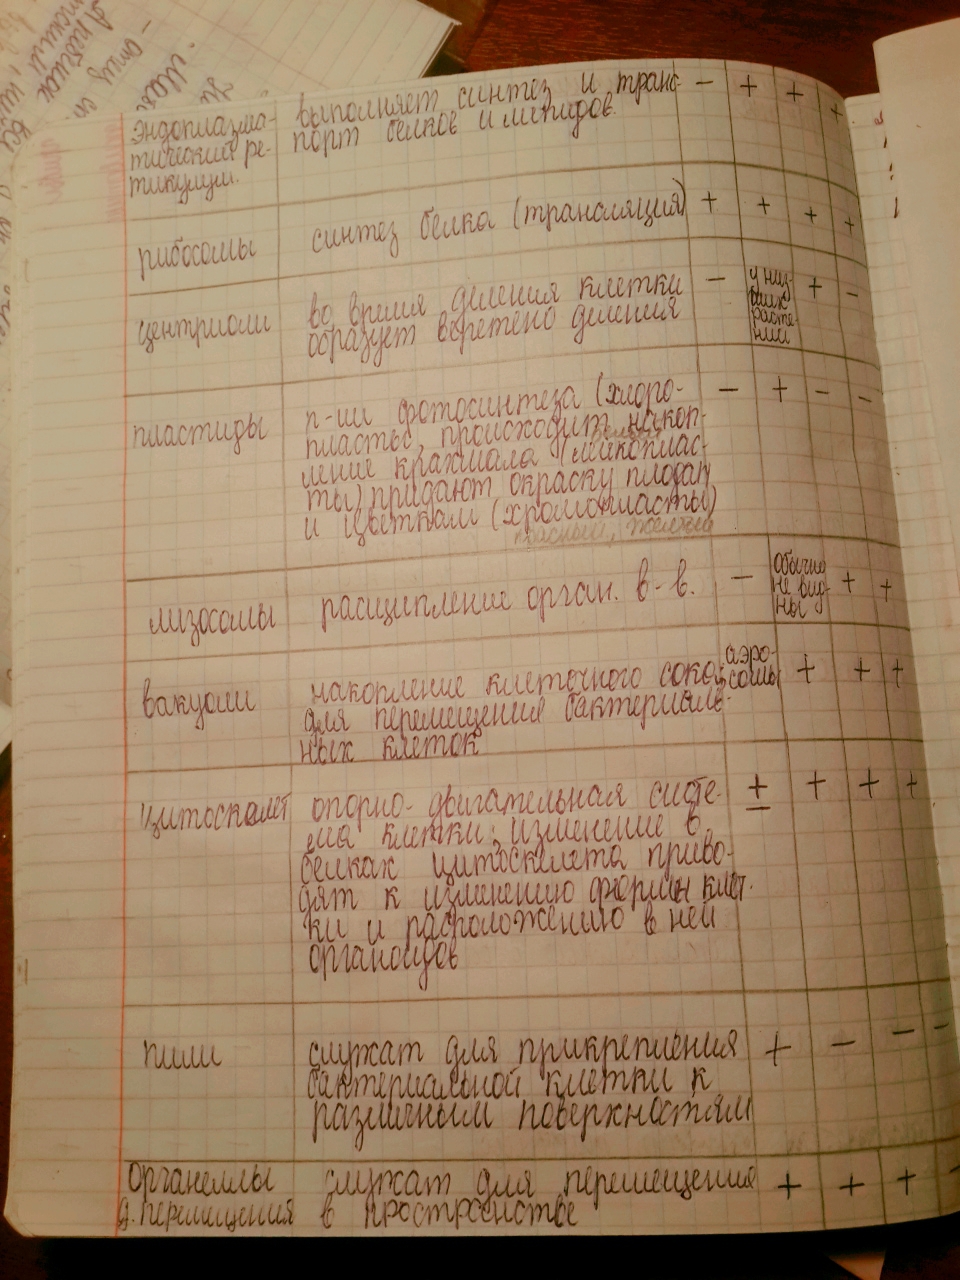 эндоплазма-
тический ре-
тикулум.
выполняет синтез и транс-
порт белков и липидов.
− + + +
рибосомы
синтез белка (трансляция)
+ + + +
центриоли
во время деления клетки
образует веретено деления
−
у низ-
ших
расте-
ний
+ −
пластиды
п-ии фотосинтеза (хлоро-
пласты, происходит накоп-
ление крахмала (лейкоплас-
ты) придают окраску плодам
и цветкам (хромопласты)
красный, желтый
− + − −
лизосомы
расщипление орган. в-в.
−
обычно
не вид-
ны
+ +
вакуоли
накопление клеточного сока;
для перемещения бактериаль-
ных клеток
аэро-
сомы
+ + +
цитоскелет
опорно-двигательная систе-
ма клетки; изменение в
белках цитоскелета приво-
дят к изменению формы клет-
ки и расположению в ней
органоидов
± + + +
пили
служат для прикрепления
бактериальной клетки к
различным поверхностям
+ − − −
органеллы
д. перемещения
служат для перемещения
в пространстве
+ + + −